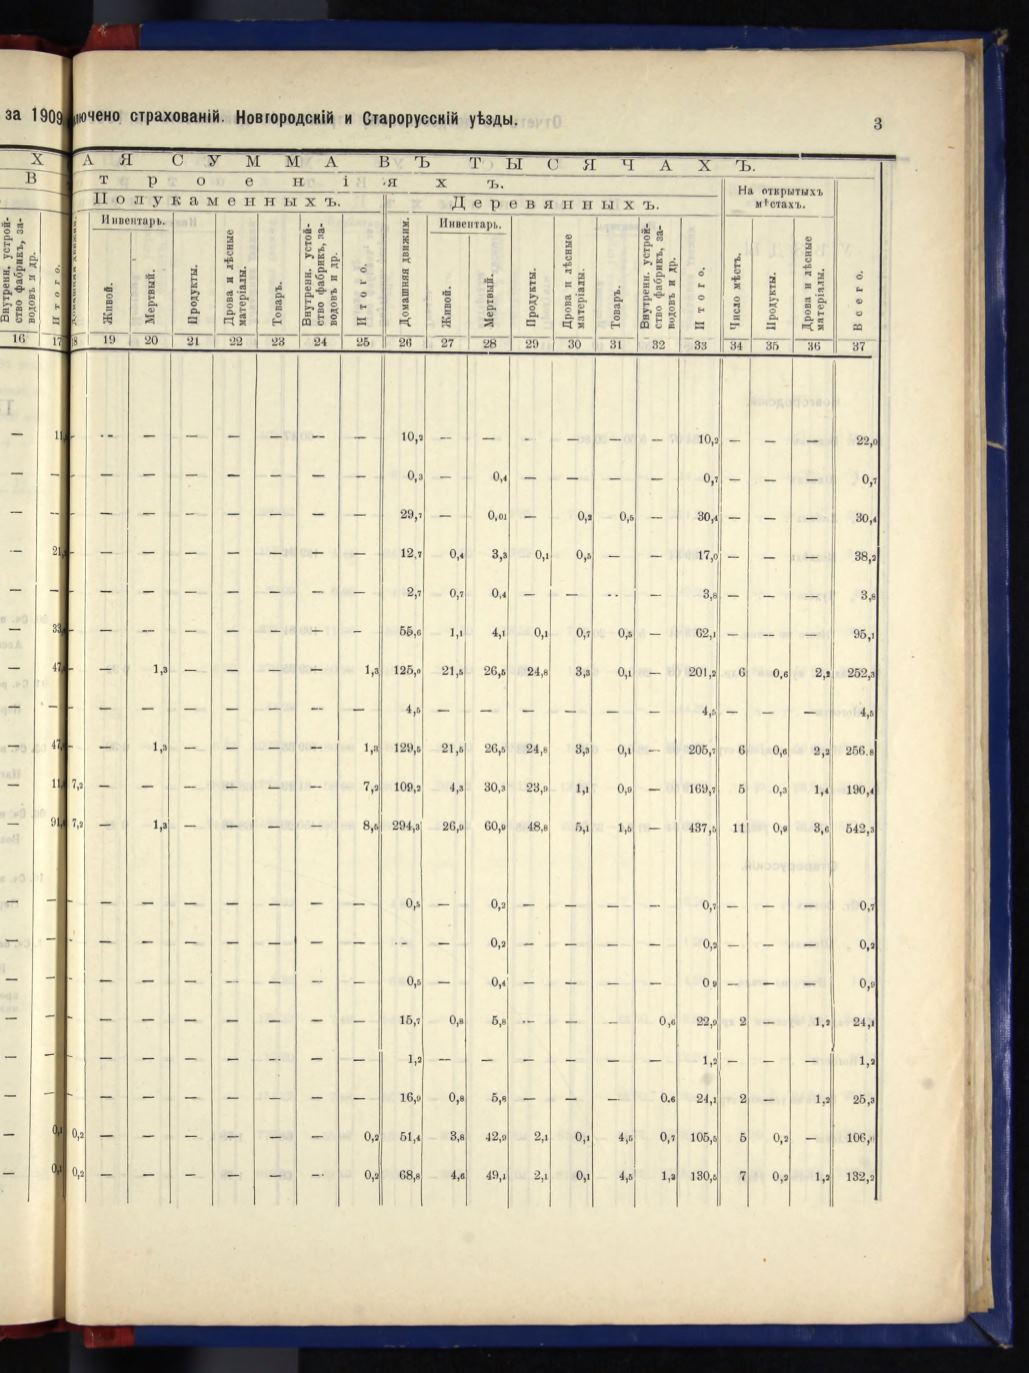 за 1909
лючено страхованій. Новгородскій и Старорусскій уѣзды.
3
Х А Я С У М М А В Ъ Т Ы С Я Ч А Х Ъ.
В т р о е н і я х ъ.
На открытыхъ мѣстахъ.
Полукаменныхъ. Деревянныхъ.
Внутренн. устройство фабрикъ, заводовъ и др.
Итого.
Инвентарь.
Живой.
Мертвый.
Продукты.
Дрова и лѣсные матеріалы.
Товаръ.
Внутренн. устойство фабрикъ, заводовъ и др.
Итого.
Домашняя движим.
Инвентарь.
Живой.
Мертвый.
Продукты.
Дрова и лѣсные матеріалы.
Товаръ.
Внутренн. устройство фабрикъ, заводовъ и др.
Итого.
Число мѣстъ.
Продукты.
Дрова и лѣсные матеріалы.
Всего.
16 17 18 19 20 21 22 23 24 25 26 27 28 29 30 31 32 33 34 35 36 37
— — — — — — — — 10,2 — — - — — — 10,2 — — — 22,0
— — — — — — — — — 0,3 — 0,4 — — — — 0,7 — — — 0,7
— — — — — — — — — 29,7 — 0,01 — 0,2 0,5 — 30,4 — — — 30,4
— — — — — — — — 12,7 0,4 3,3 0,1 0,5 — — 17,0 — — — 38,2
— — — — — — — — — 2,7 0,7 0,4 — — — — 3,8 — — — 3,8
— — — — — — — — 55,6 1,1 4,1 0,1 0,7 0,5 — 62,1 — — — 95,1
— — 1,3 — — — — 1,3 125,0 21,5 26,5 24,8 3,3 0,1 — 201,2 6 0,6 2,2 252,3
— — — — — — — — — 4,5 — — — — — — 4,5 — — — 4,5
— — 1,3 — — — — 1,3 129,5 21,5 26,5 24,8 3,3 0,1 — 205,7 6 0,6 2,2 256,8
— 7,2 — — — — — — 7,2 109,2 4,3 30,3 23,9 1,1 0,9 — 169,7 5 0,3 1,4 190,4
— 7,2 — 1,3 — — — — 8,5 294,3 26,9 60,9 48,8 5,1 1,5 — 437,5 11 0,9 3,6 542,3
— — — — — — — — — 0,5 — 0,2 — — — — 0,7 — — — 0,7
— — — — — — — — — — — 0,2 — — — — 0,2 — — — 0,2
— — — — — — — — — 0,5 — 0,4 — — — — 0 9 — — — 0,9
— — — — — — — — — 15,7 0,8 5,8 — — — 0,6 22,9 2 — 1,2 24,1
— — — — — — — — — 1,2 — — — — — — 1,2 — — — 1,2
— — — — — — — — — 16,9 0,8 5,8 — — — 0.6 24,1 2 — 1,2 25,3
— 0,1 0,2 — — — — — — 0,2 51,4 3,8 42,9 2,1 0,1 4,5 0,7 105,5 5 0,2 —
— 0,1 0,2 — — — — — — 0,2 68,8 4,6 49,1 2,1 0,1 4,5 1,3 130,5 7 0,2 1,2 132,2